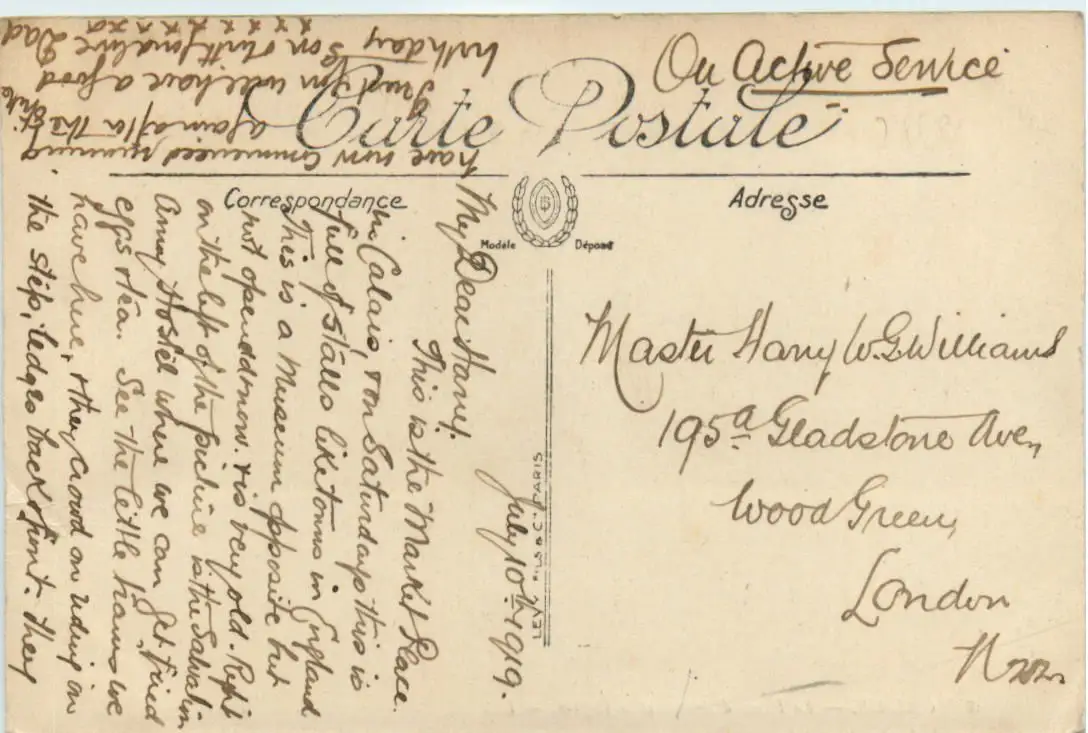 On Active Service
Carte Postale
Correspondance
Adresse
Modèle Déposé
LEVY FILS & Cie PARIS
July 10th 1919.
My Dear Harry.
This is the Market Place
in Calais & on Saturdays this is
full of stalls like towns in England
This is a Museum opposite but
not opened now. & is very old. Right
on the left of the picture is the Salvation
Army Hostel where we can get fried
eggs & tea. See the little trams we
have here, & they crowd on riding on
the step, ledges back & front. They
have now commenced running
again after the strike
Trust you will have a good
birthday Son & with fond love Dad
x x x x x x x x x
Master Harry W. G. Williams
195a Gladstone Ave,
Wood Green,
London
N 22.